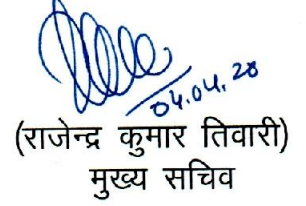 04.04.20
(राजेन्द्र कुमार तिवारी)
मुख्य सचिव